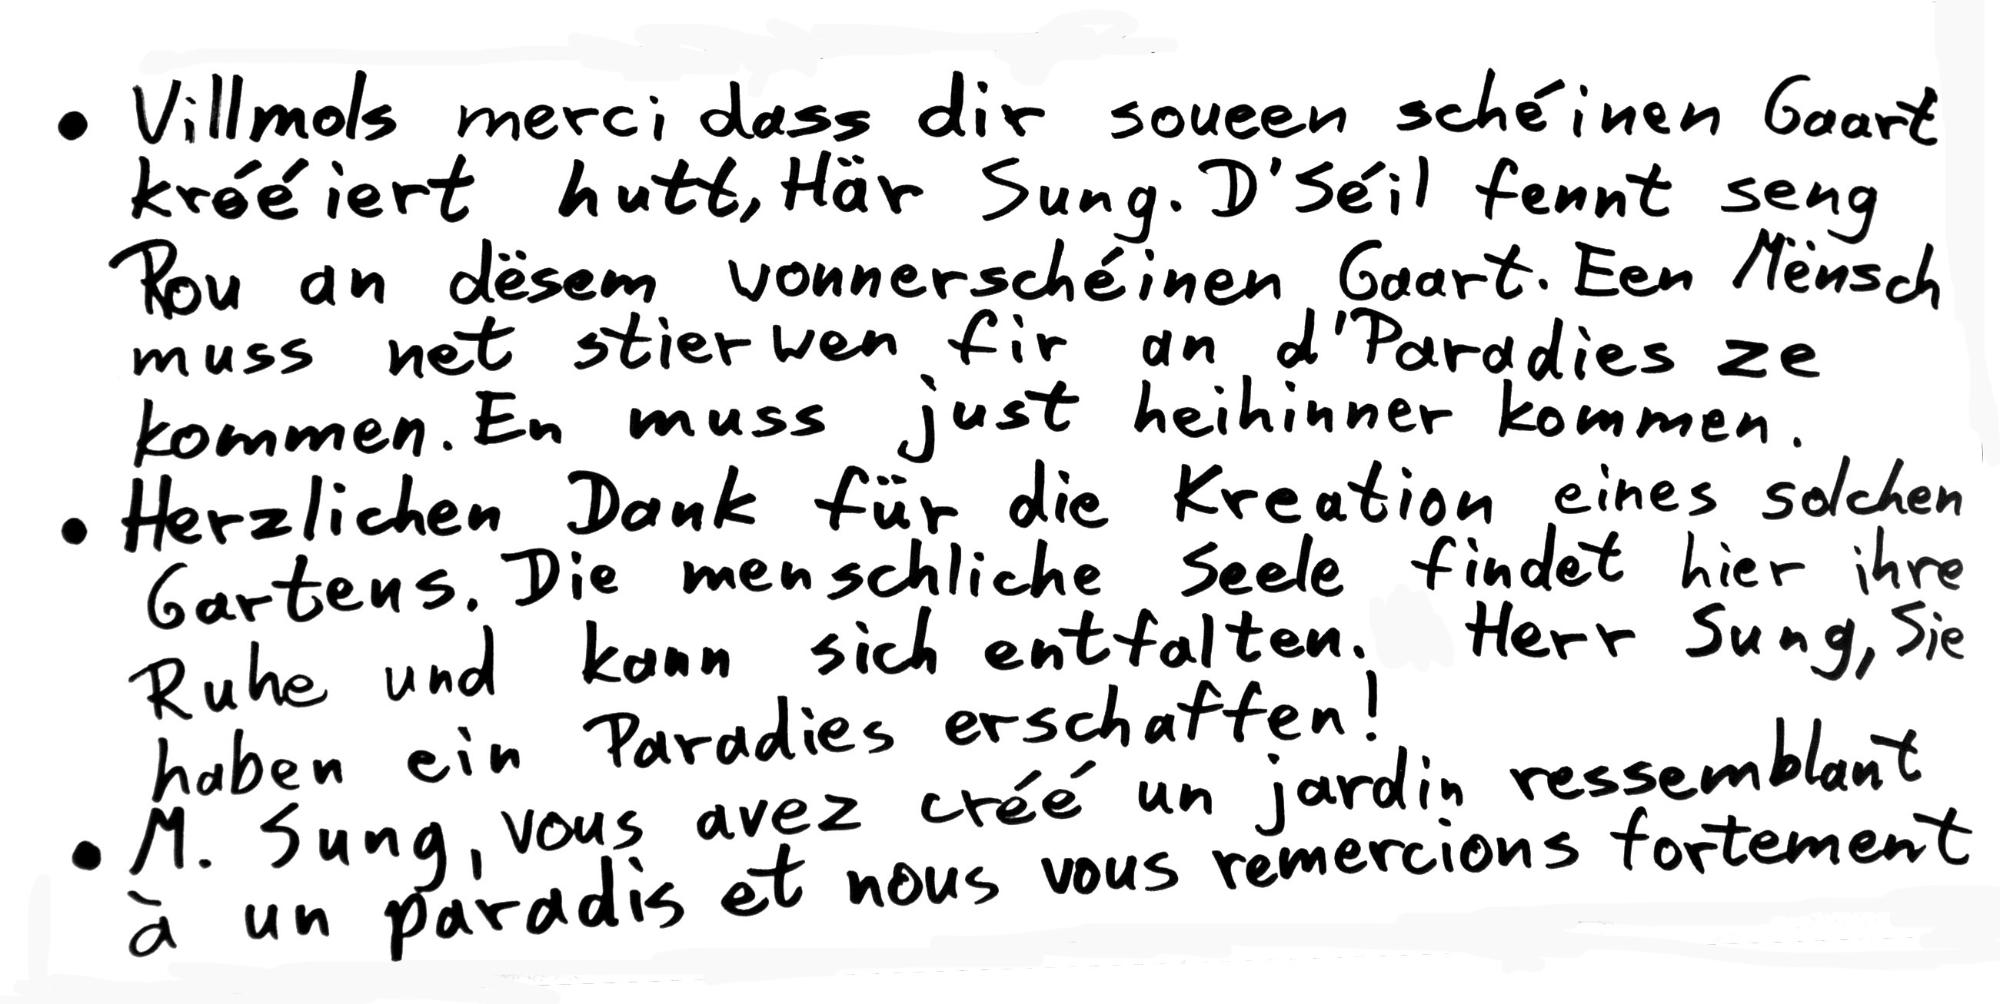 • Villmols merci dass dir soueen schéinen Gaart
krééiert hutt, Här Sung. D'Séil fennt seng
Rou an dësem vonnerschéinen Gaart. Een Mënsch
muss net stierwen fir an d'Paradies ze
kommen. En muss just heihinner kommen.
• Herzlichen Dank für die Kreation eines solchen
Gartens. Die menschliche Seele findet hier ihre
Ruhe und kann sich entfalten. Herr Sung, Sie
haben ein Paradies erschaffen!
• M. Sung, vous avez créé un jardin ressemblant
à un paradis et nous vous remercions fortement